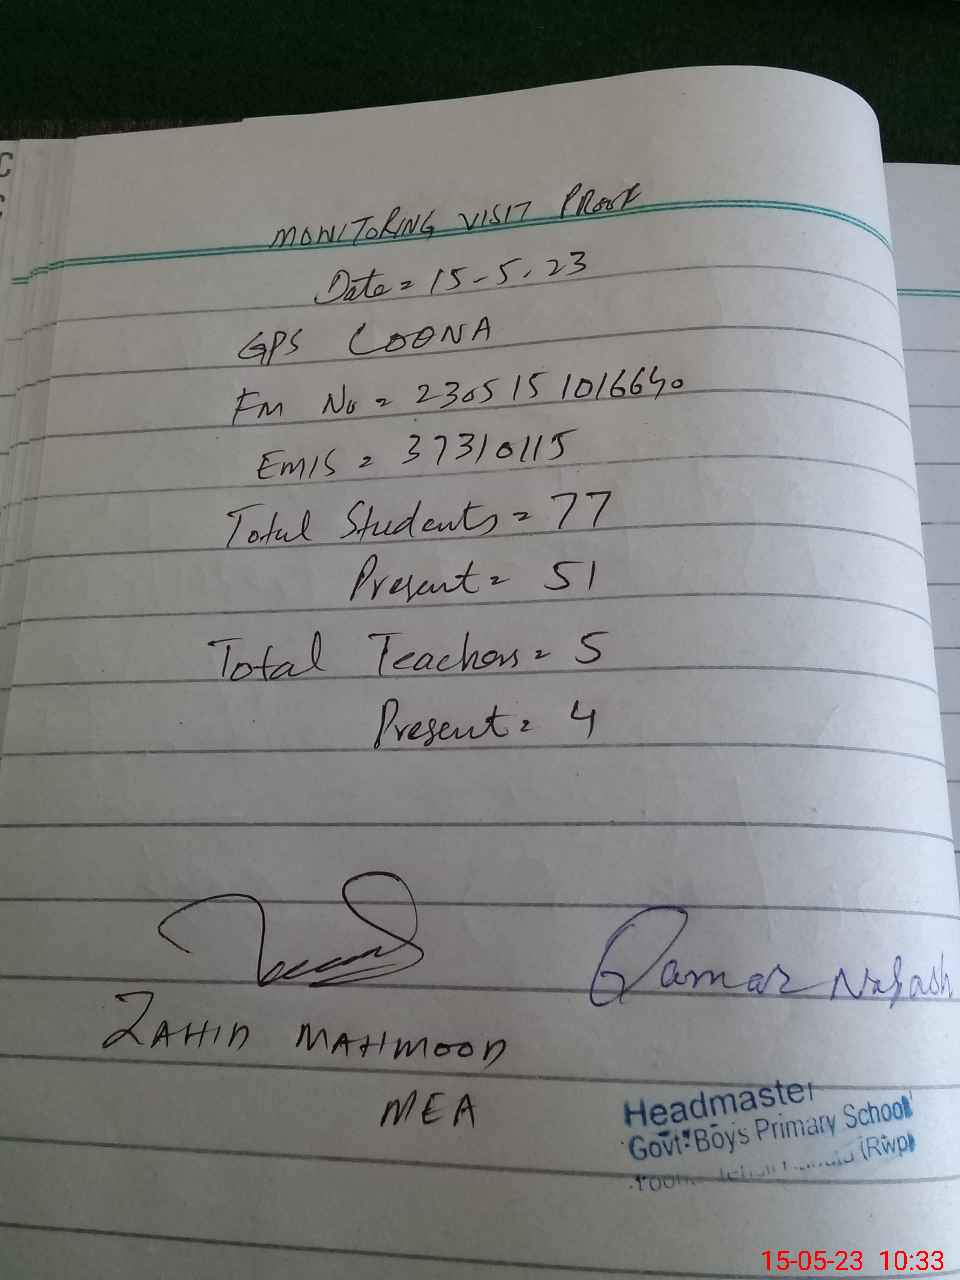 MONITORING VISIT PROOF
Date = 15-5-23
GPS LOONA
FM No = 230515 1016640
EMIS = 37310115
Total Students = 77
Present = 51
Total Teachers = 5
Present = 4
Qamar
ZAHID MAHMOOD
MEA
Headmaster
Govt: Boys Primary School
(Rwp)
15-05-23 10:33